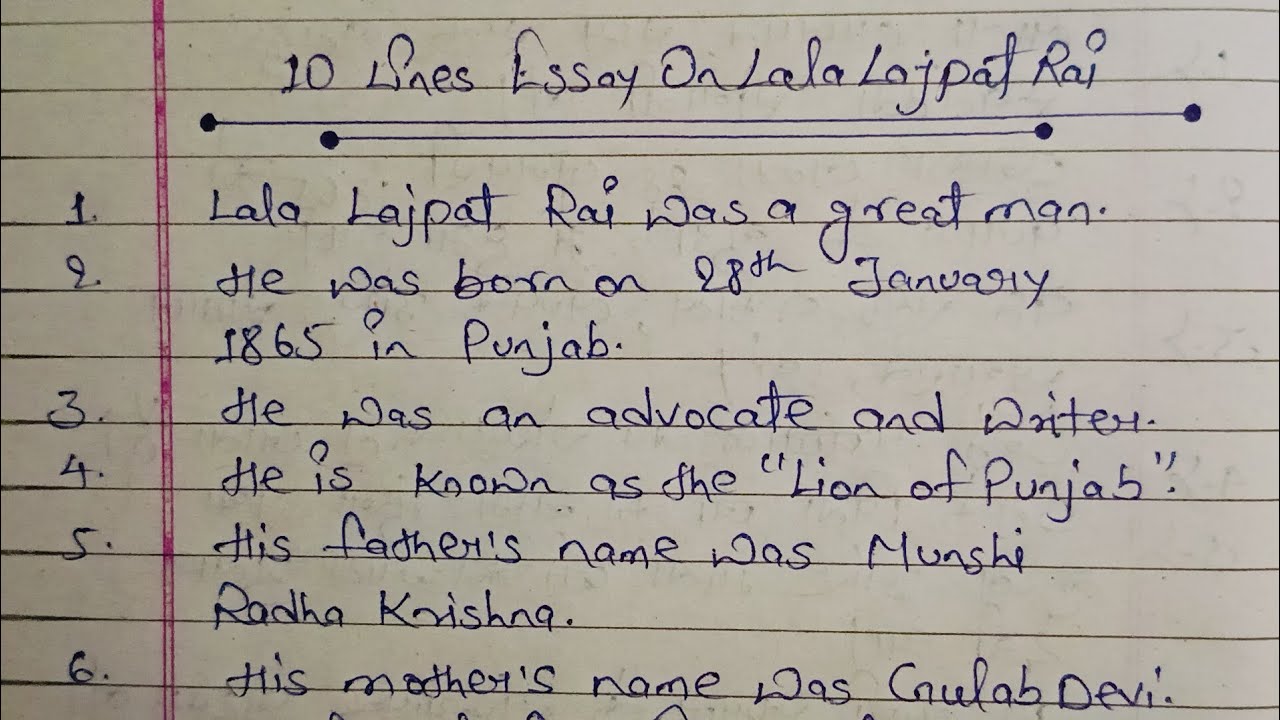 10 Lines Essay On Lala Lajpat Rai
1. Lala Lajpat Rai was a great man.
2. He was born on 28th January
1865 in Punjab.
3. He was an advocate and writer.
4. He is known as the "Lion of Punjab".
5. His father's name was Munshi
Radha Krishna.
6. His mother's name was Gulab Devi.